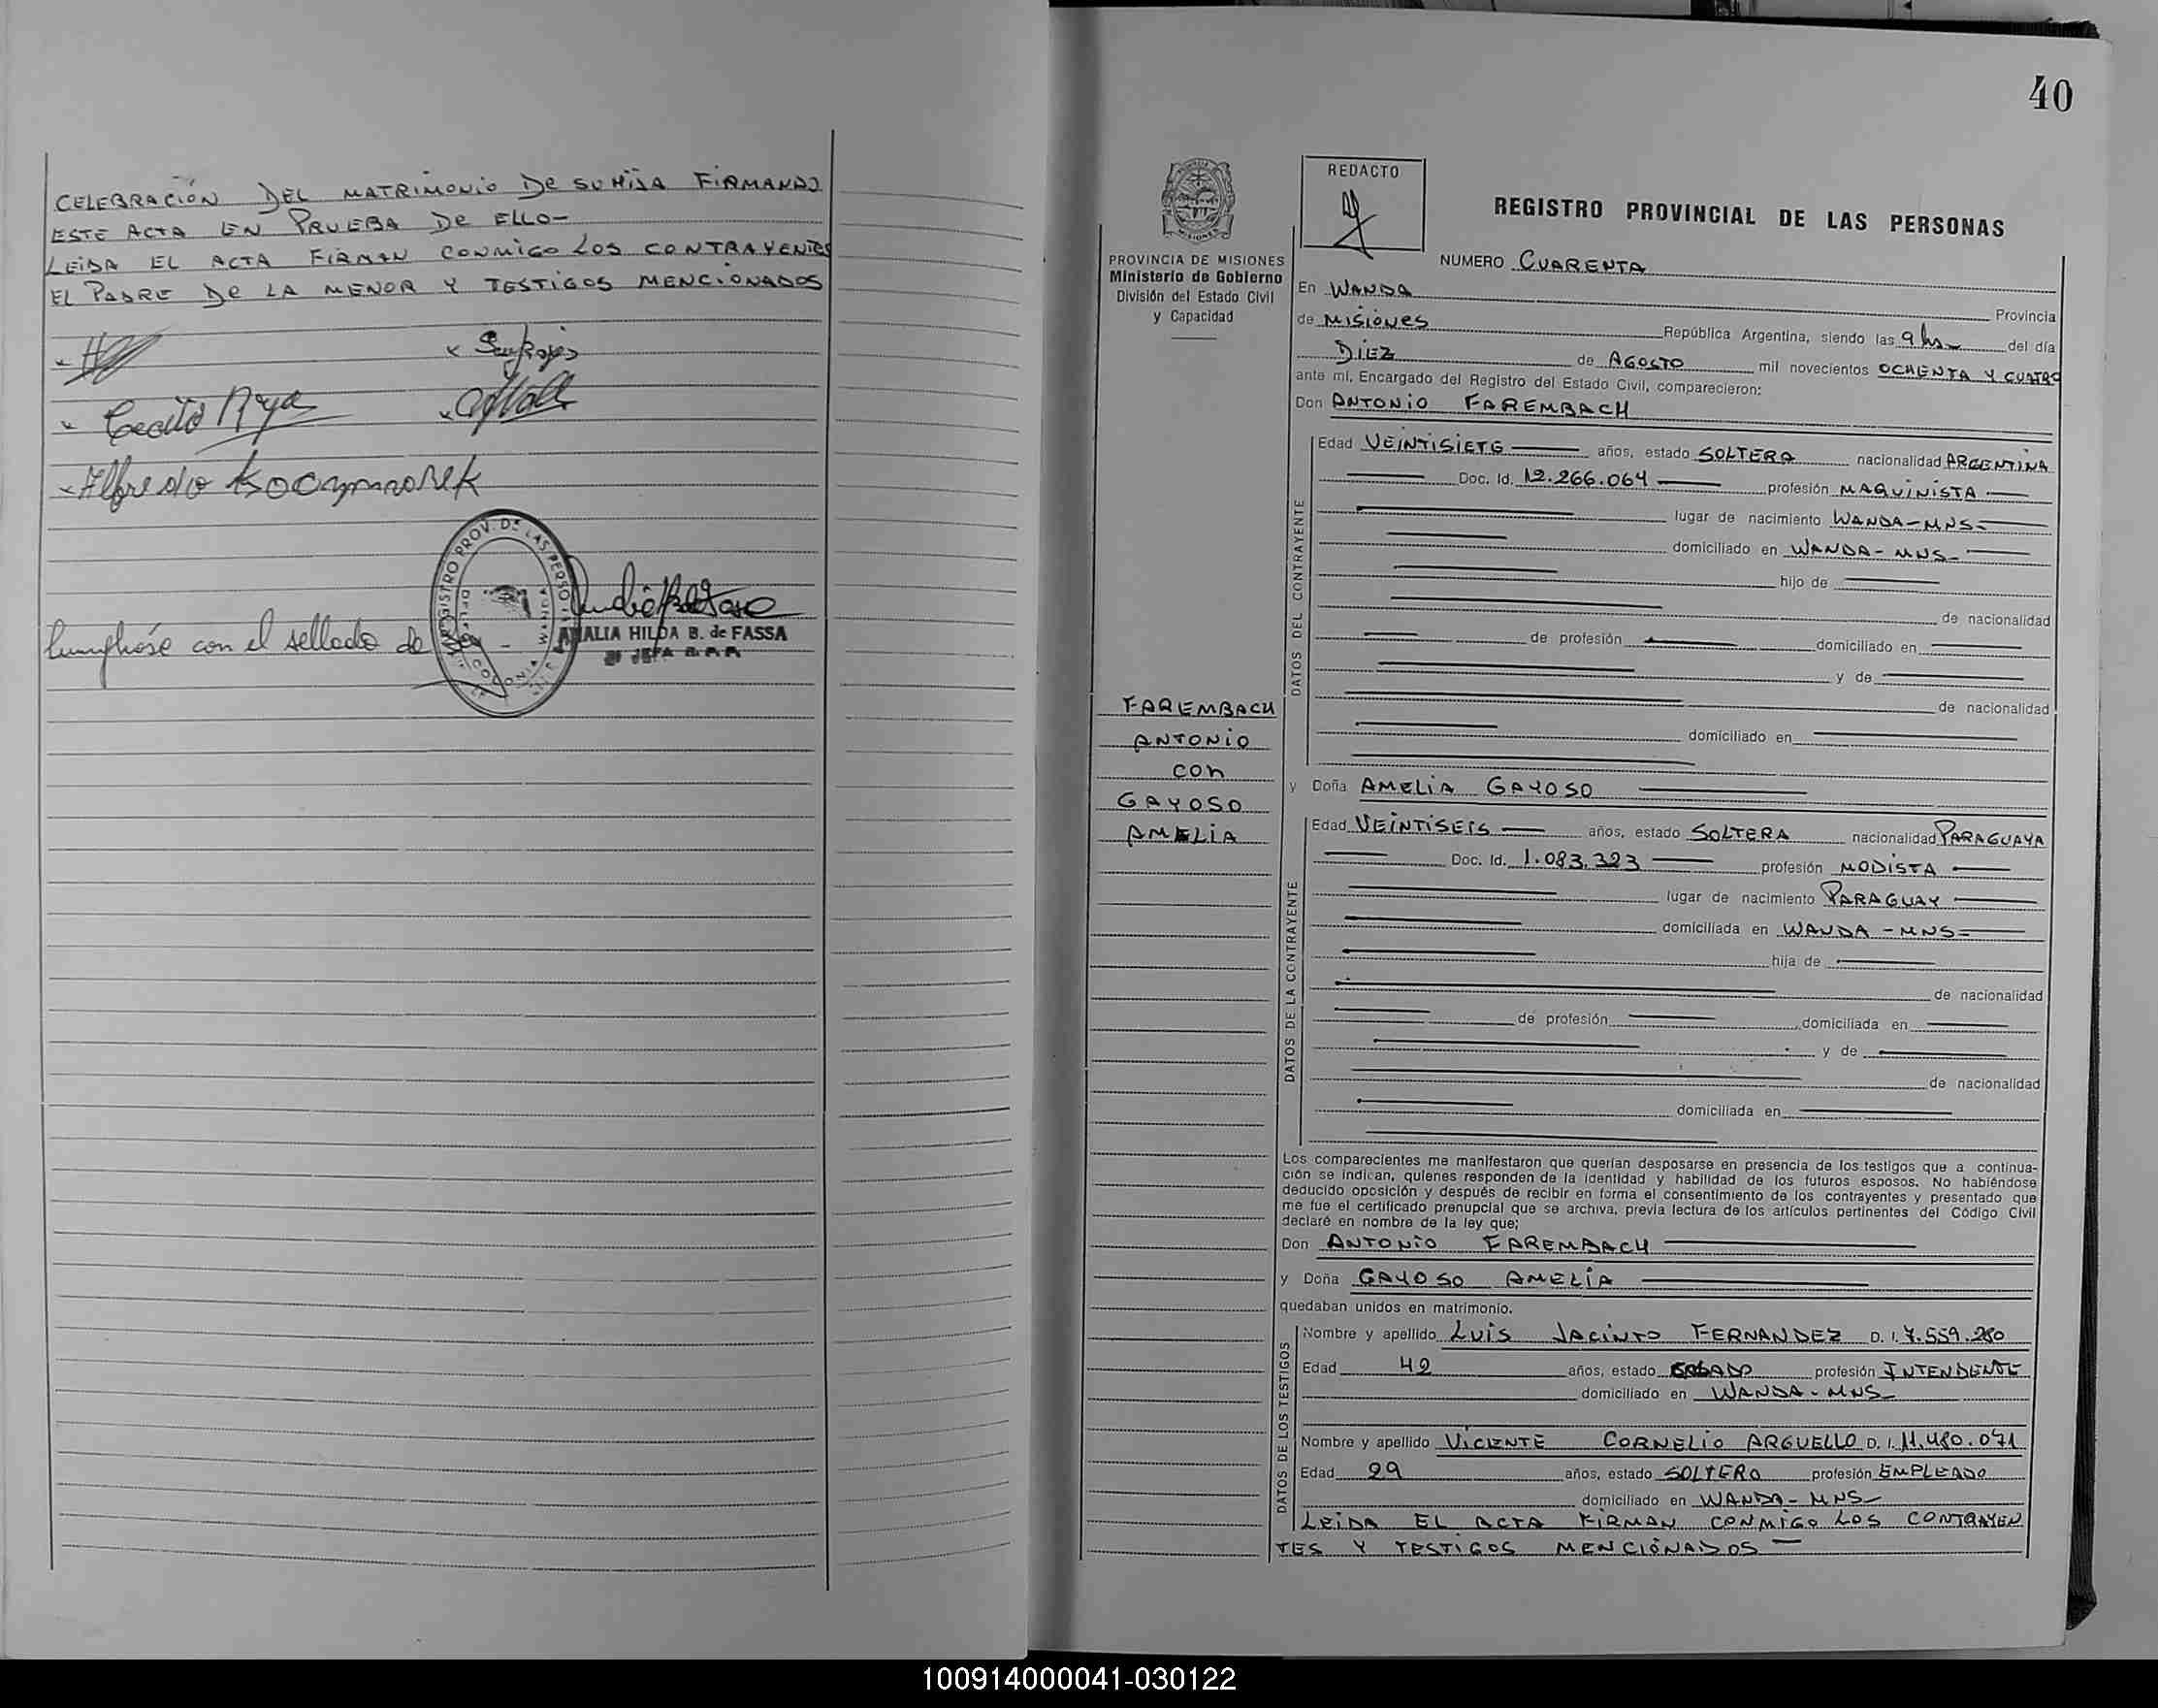 CELEBRACIÓN DEL MATRIMONIO DE SU HIJA FIRMANDO
ESTE ACTA EN PRUEBA DE ELLO-
LEIDA EL ACTA FIRMAN CONMIGO LOS CONTRAYENTES
EL PADRE DE LA MENOR Y TESTIGOS MENCIONADOS
Alfredo
REGISTRO PROV. DE LAS PERSO
COLONIA WANDA
Cumplióse con el sellado de Ley -
AMALIA HILDA B. de FASSA
JEFA
40
REDACTO
PROVINCIA DE MISIONES
Ministerio de Gobierno
División del Estado Civil
y Capacidad
REGISTRO PROVINCIAL DE LAS PERSONAS
NUMERO CUARENTA
En WANDA Provincia
de MISIONES República Argentina, siendo las 9 hs del día
DIEZ de AGOSTO mil novecientos OCHENTA Y CUATRO
ante mí, Encargado del Registro del Estado Civil, comparecieron:
Don ANTONIO FAREMBACH
DATOS DEL CONTRAYENTE
Edad VEINTISIETE años, estado SOLTERA nacionalidad ARGENTINA
Doc. Id. 12.266.064 profesión MAQUINISTA
lugar de nacimiento WANDA-MNS-
domiciliado en WANDA-MNS-
hijo de
de nacionalidad
de profesión domiciliado en
y de
de nacionalidad
domiciliado en
FAREMBACH
ANTONIO
con
GAYOSO
AMELIA
y Doña AMELIA GAYOSO
DATOS DE LA CONTRAYENTE
Edad VEINTISEIS años, estado SOLTERA nacionalidad PARAGUAYA
Doc. Id. 1.083.323 profesión MODISTA
lugar de nacimiento PARAGUAY
domiciliada en WANDA-MNS-
hija de
de nacionalidad
de profesión domiciliada en
y de
de nacionalidad
domiciliada en
Los comparecientes me manifestaron que querían desposarse en presencia de los testigos que a continua-
ción se indican, quienes responden de la identidad y habilidad de los futuros esposos. No habiéndose
deducido oposición y después de recibir en forma el consentimiento de los contrayentes y presentado que
me fue el certificado prenupcial que se archiva, previa lectura de los artículos pertinentes del Código Civil
declaré en nombre de la ley que;
Don ANTONIO FAREMBACH
y Doña GAYOSO AMELIA
quedaban unidos en matrimonio.
DATOS DE LOS TESTIGOS
Nombre y apellido LUIS JACINTO FERNANDEZ D. I. 7.559.280
Edad 42 años, estado CASADO profesión INTENDENTE
domiciliado en WANDA-MNS-
Nombre y apellido VICENTE CORNELIO ARGUELLO D. I. 11.480.071
Edad 29 años, estado SOLTERO profesión EMPLEADO
domiciliado en WANDA-MNS-
LEIDA EL ACTA FIRMAN CONMIGO LOS CONTRAYEN
TES Y TESTIGOS MENCIONADOS -
100914000041-030122